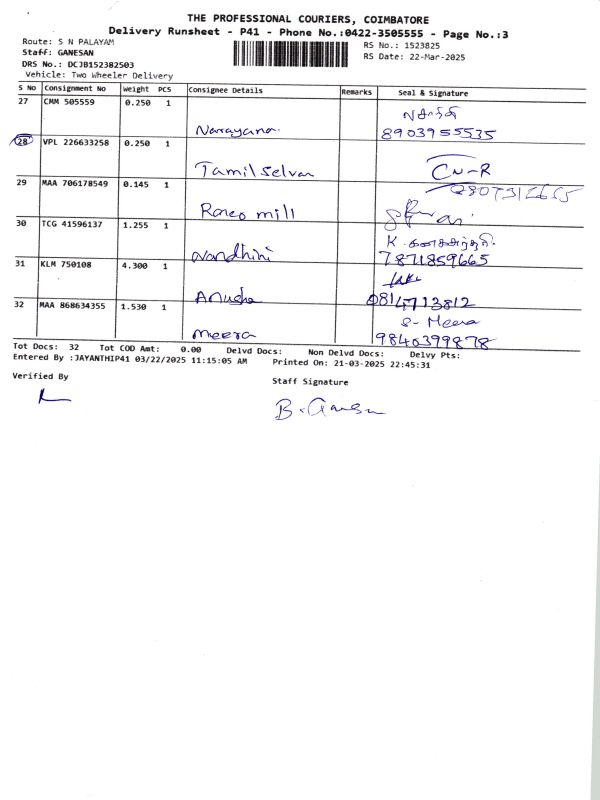 THE PROFESSIONAL COURIERS, COIMBATORE
Delivery Runsheet - P41 - Phone No.:0422-3505555 - Page No.:3
Route: S N PALAYAM
RS No.: 1523825
Staff: GANESAN
RS Date: 22-Mar-2025
DRS No.: DCJB152382503
Vehicle: Two Wheeler Delivery
S No Consignment No Weight PCS Consignee Details Remarks Seal & Signature
27 CMM 505559 0.250 1
Narayana. 8903955535
28 VPL 226633258 0.250 1
Tamil selvan CN-R
29 MAA 706178549 0.145 1
Raneo mill
30 TCG 41596137 1.255 1 K.
Nandhini 7871859665
31 KLM 750108 4.300 1
Anusha 0814713812
32 MAA 868634355 1.530 1 S- Meera
meera 9840399878
Tot Docs: 32 Tot COD Amt: 0.00 Delvd Docs: Non Delvd Docs: Delvy Pts:
Entered By :JAYANTHIP41 03/22/2025 11:15:05 AM Printed On: 21-03-2025 22:45:31
Verified By
Staff Signature
B. Ganesan